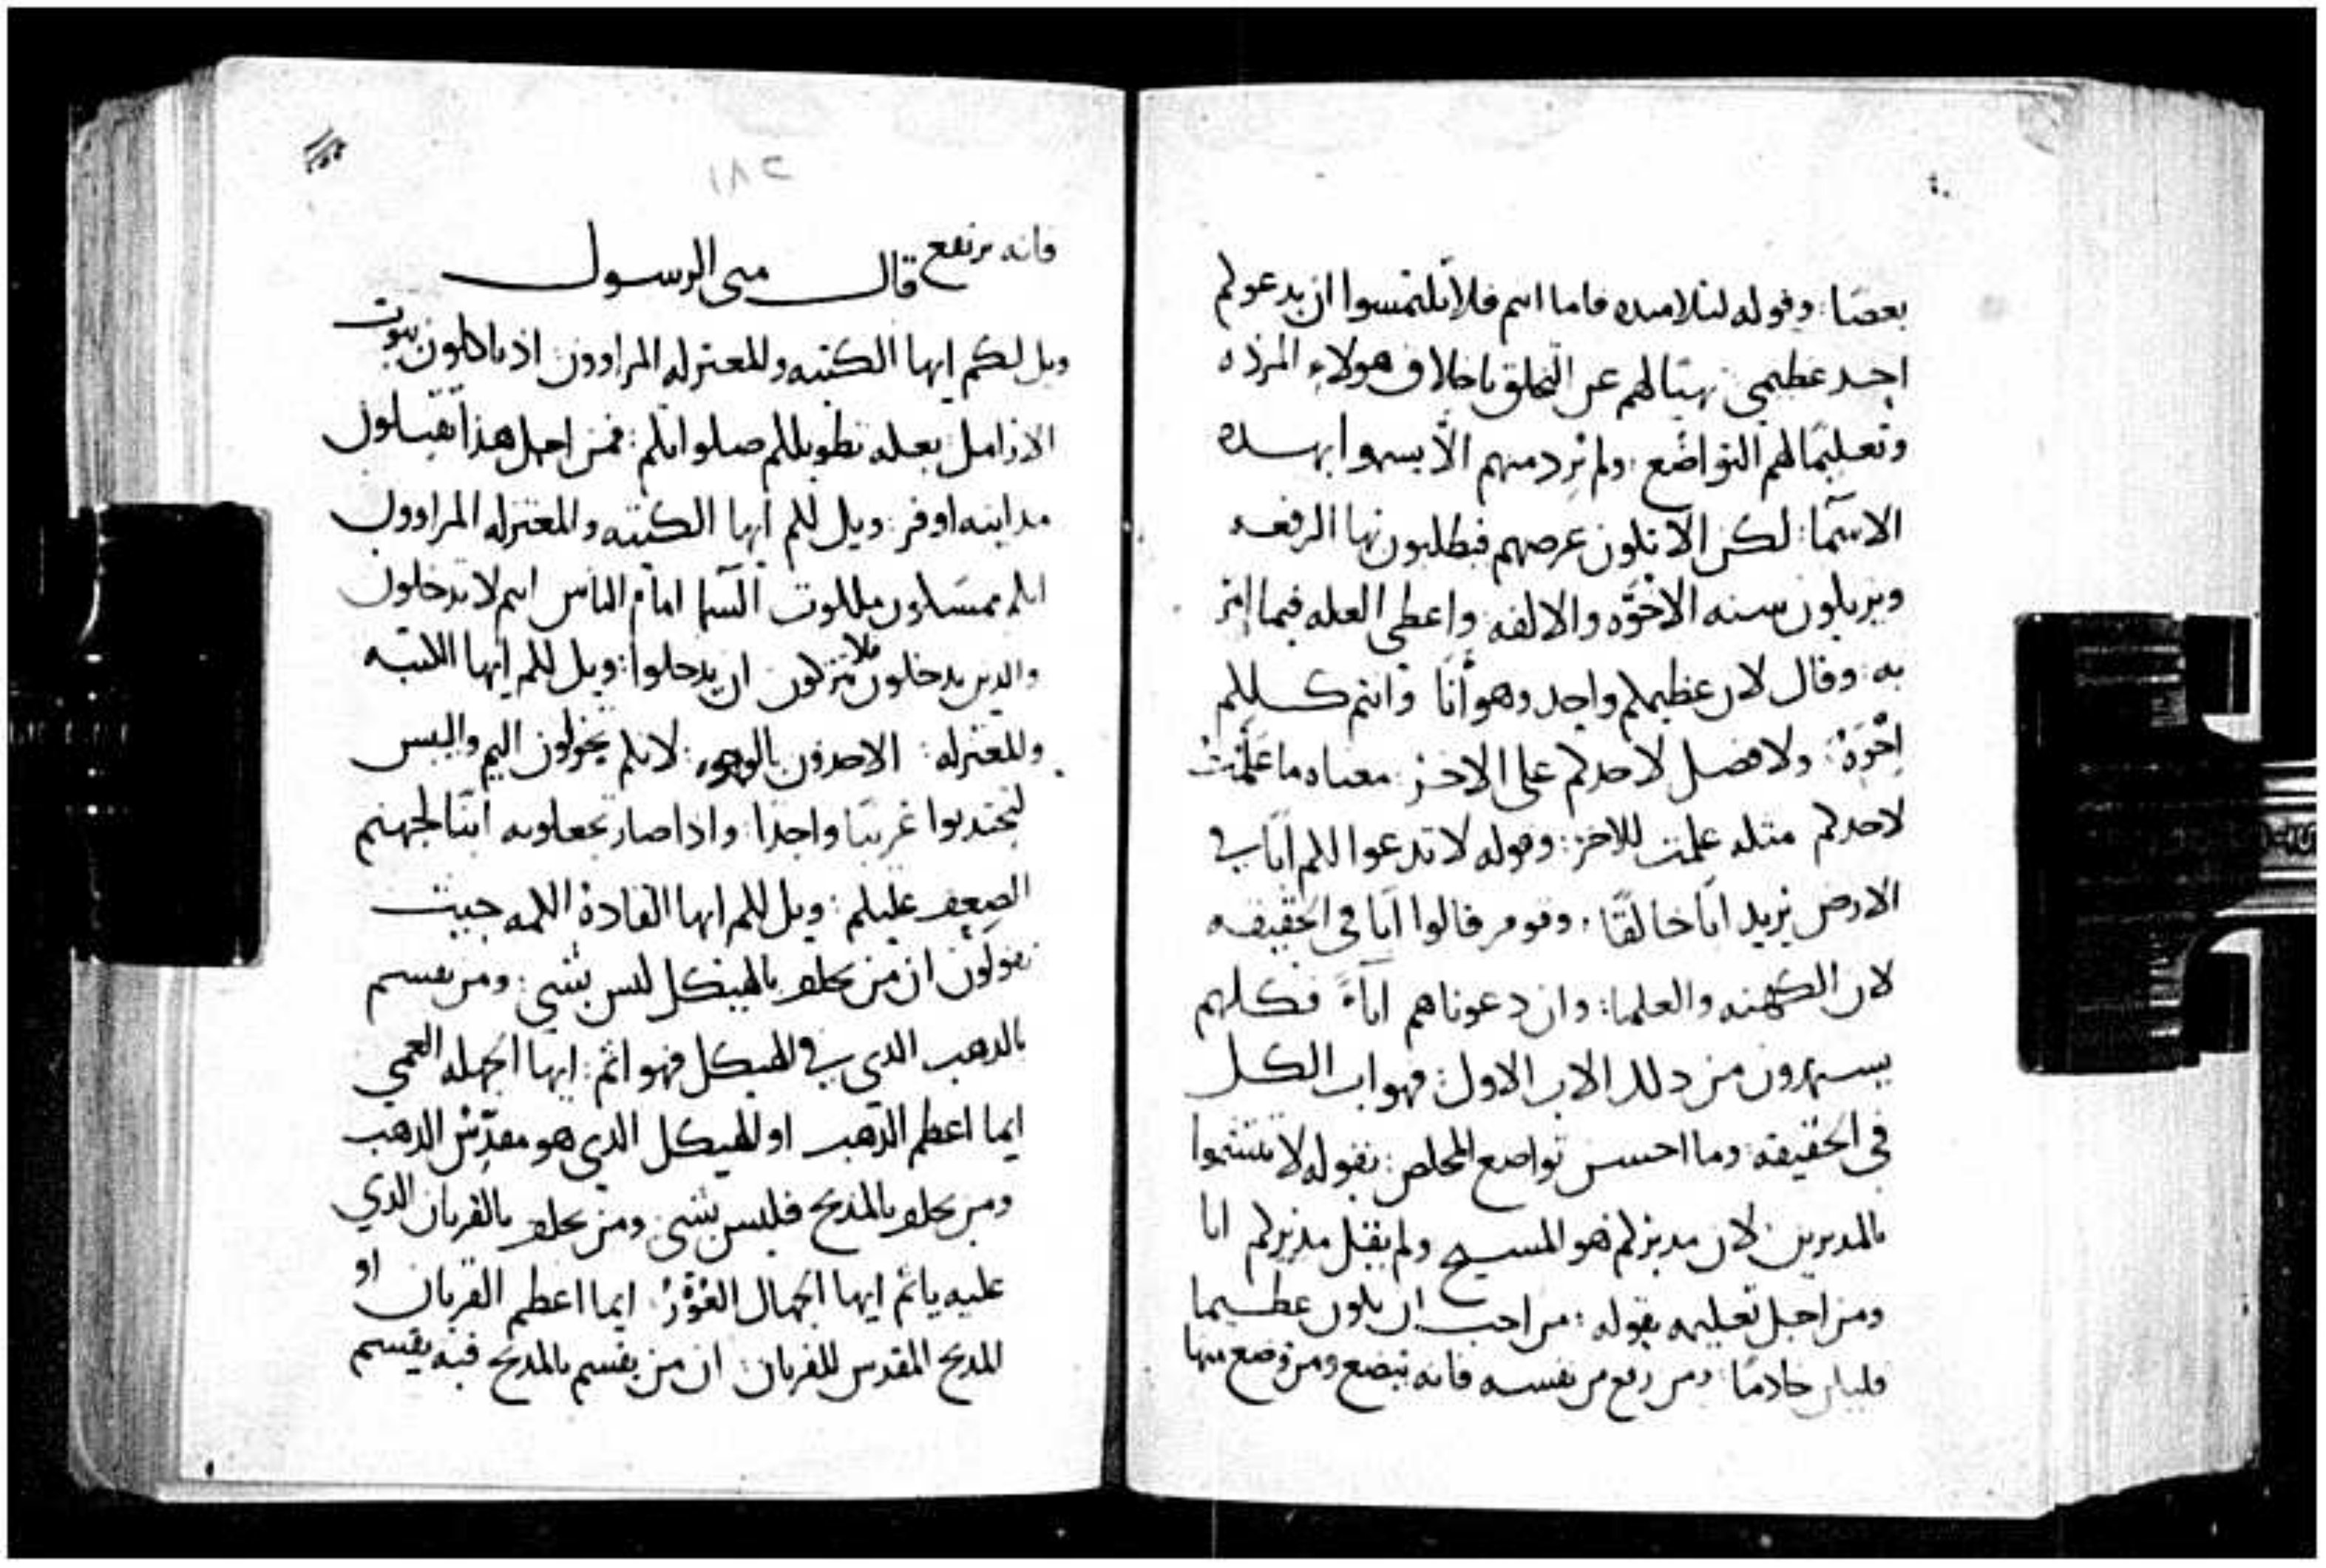 بعضا: وقوله لتلاميذه فاما انتم فلا تلتمسوا ان يدعوكم
احد عظيمي نهيًا لهم عن التخلق باخلاق هولاء المرذه
وتعليمًا لهم التواضع: ولم يُرد منهم الّا يسموا بهذه
الاسمآ: لكن الا تكون غرضهم فيطلبون بها الرفعه
ويزيلون سنه الاخوّه والالفه: واعطى العله فيما امر
به: وقال لان عظيمكم واحد وهو أنا وانتم كلكم
اخْوَةٌ: ولا فضل لاحدكم على الاخر: معناه ما علّمت
لاحدكم مثله علمت للاخر: وقوله لا تدعوا لكم ابًا في
الارض يريد ابًا خالقًا: وقوم قالوا ابًا في الحقيقه
لان الكهنه والعلما: وان دعوناهم اباءً فكلهم
يستمدون من ذلك الاب الاول: فهو اب الكل
في الحقيقه: وما احسن تواضع المخلص: بقوله لا تتسموا
بالمدبرين: لان مدبركم هو المسيح ولم يقل مدبركم انا
ومن اجل تعليمه بقوله: من احب ان يكون عظيما
فليكن خادمًا: ومن رفع من نفسه فانه يتضع ومن وضع منها
٢٨١
فانه يرتفع قال متى الرسول
ويل لكم ايها الكتبه والمعتزله المراوون: اذ تاكلون بيوت
الارامل: بعله تطويلكم صلواتكم: فمن اجل هذا تقبلون
مداينه اوفر: ويل لكم ايها الكتبه والمعتزله المراوون
انكم تمسكون ملكوت السما امام الناس انتم لا تدخلون
والذين يدخلون فلا تتركون ان يدخلوا: ويل لكم ايها الكتبه
والمعتزله: الاخذون بالوجوه: لانكم تجولون اليم واليبس
لتجتذبوا غريبًا واحدًا: واذا صار تجعلونه ابنًا لجهنم
الضِعِف عليكم: ويل لكم ايها القادة الكمه حيث
تقولون ان من يحلف بالهيكل ليس بشي: ومن يقسم
بالذهب الذي في الهيكل فهو اثم: ايها الجهله العمي
ايما اعظم الذهب او الهيكل الذي هو مقدِّس الذهب
ومن يحلف بالمذبح فليس بشي: ومن يحلف بالقربان الذي
عليه ياثم ايها الجهال العُوْرُ: ايما اعظم القربان او
المذبح المقدس للقربان: ان من يقسم بالمذبح فبه يقسم